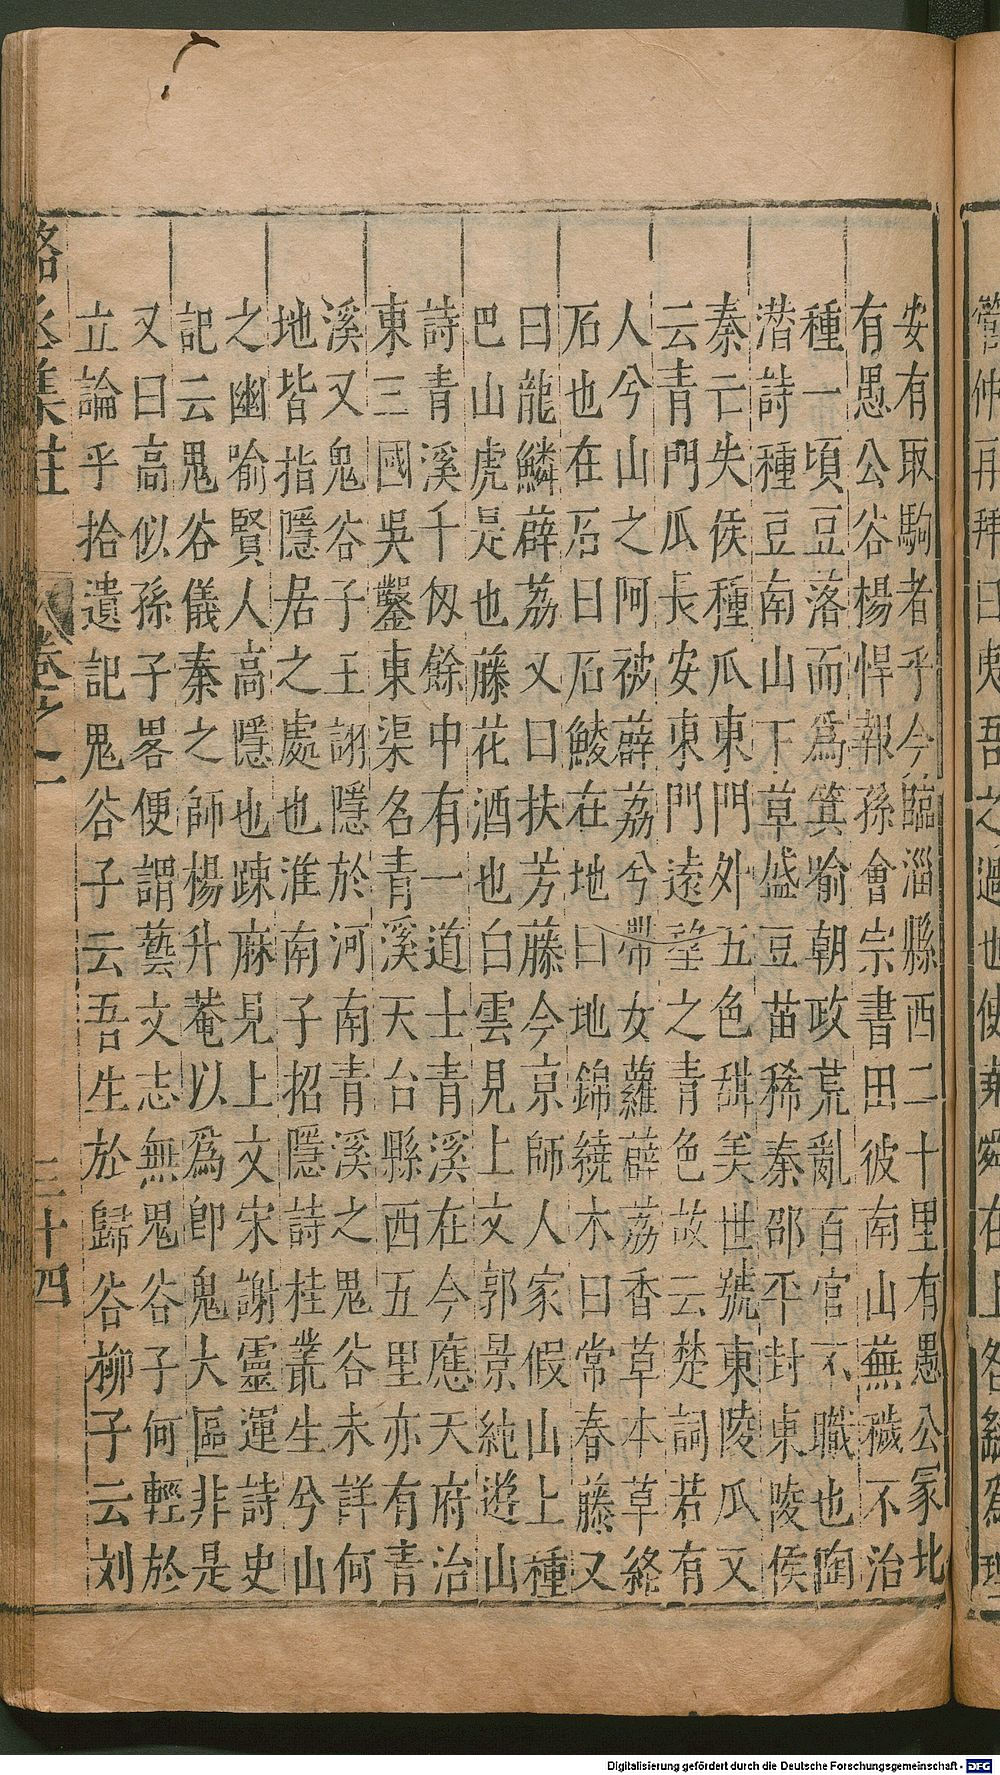 安有取駒者乎今臨淄縣西二十里有愚公冢北
有愚公谷楊惲報孫會宗書田彼南山無穢不治
種一頃豆落而爲箕喻朝政荒亂百官不職也陶
潛詩種豆南山下草盛豆苗稀秦邵平封東陵侯
秦亡失侯種瓜東門外五色甜美世號東陵瓜又
云青門瓜長安東門遠望之青色故云楚詞若有
人兮山之阿被薜荔兮帶女蘿薜荔香草本草絡
石也在石曰石鯪在地曰地錦繞木曰常春藤又
曰龍鱗薜荔又曰扶芳藤今京師人家假山上種
巴山虎是也藤花酒也白雲見上文郭景純遊山
詩青溪千仞餘中有一道士青溪在今應天府治
東三國吳鑿東渠名青溪天台縣西五里亦有青
溪又鬼谷子王詡隱於河南青溪之鬼谷未詳何
地皆指隱居之處也淮南子招隱詩桂叢生兮山
之幽喻賢人高隱也踈麻見上文宋謝靈運詩史
記云鬼谷儀秦之師楊升菴以爲卽鬼大區非是
又曰高似孫子畧便謂藝文志無鬼谷子何輕於
立論乎拾遺記鬼谷子云吾生於歸谷柳子云刘
丞集註
卷之二
三十四
管仲再拜曰夷吾之過也使堯舜在上咎繇爲理
Digitalisierung gefördert durch die Deutsche Forschungsgemeinschaft - DFG